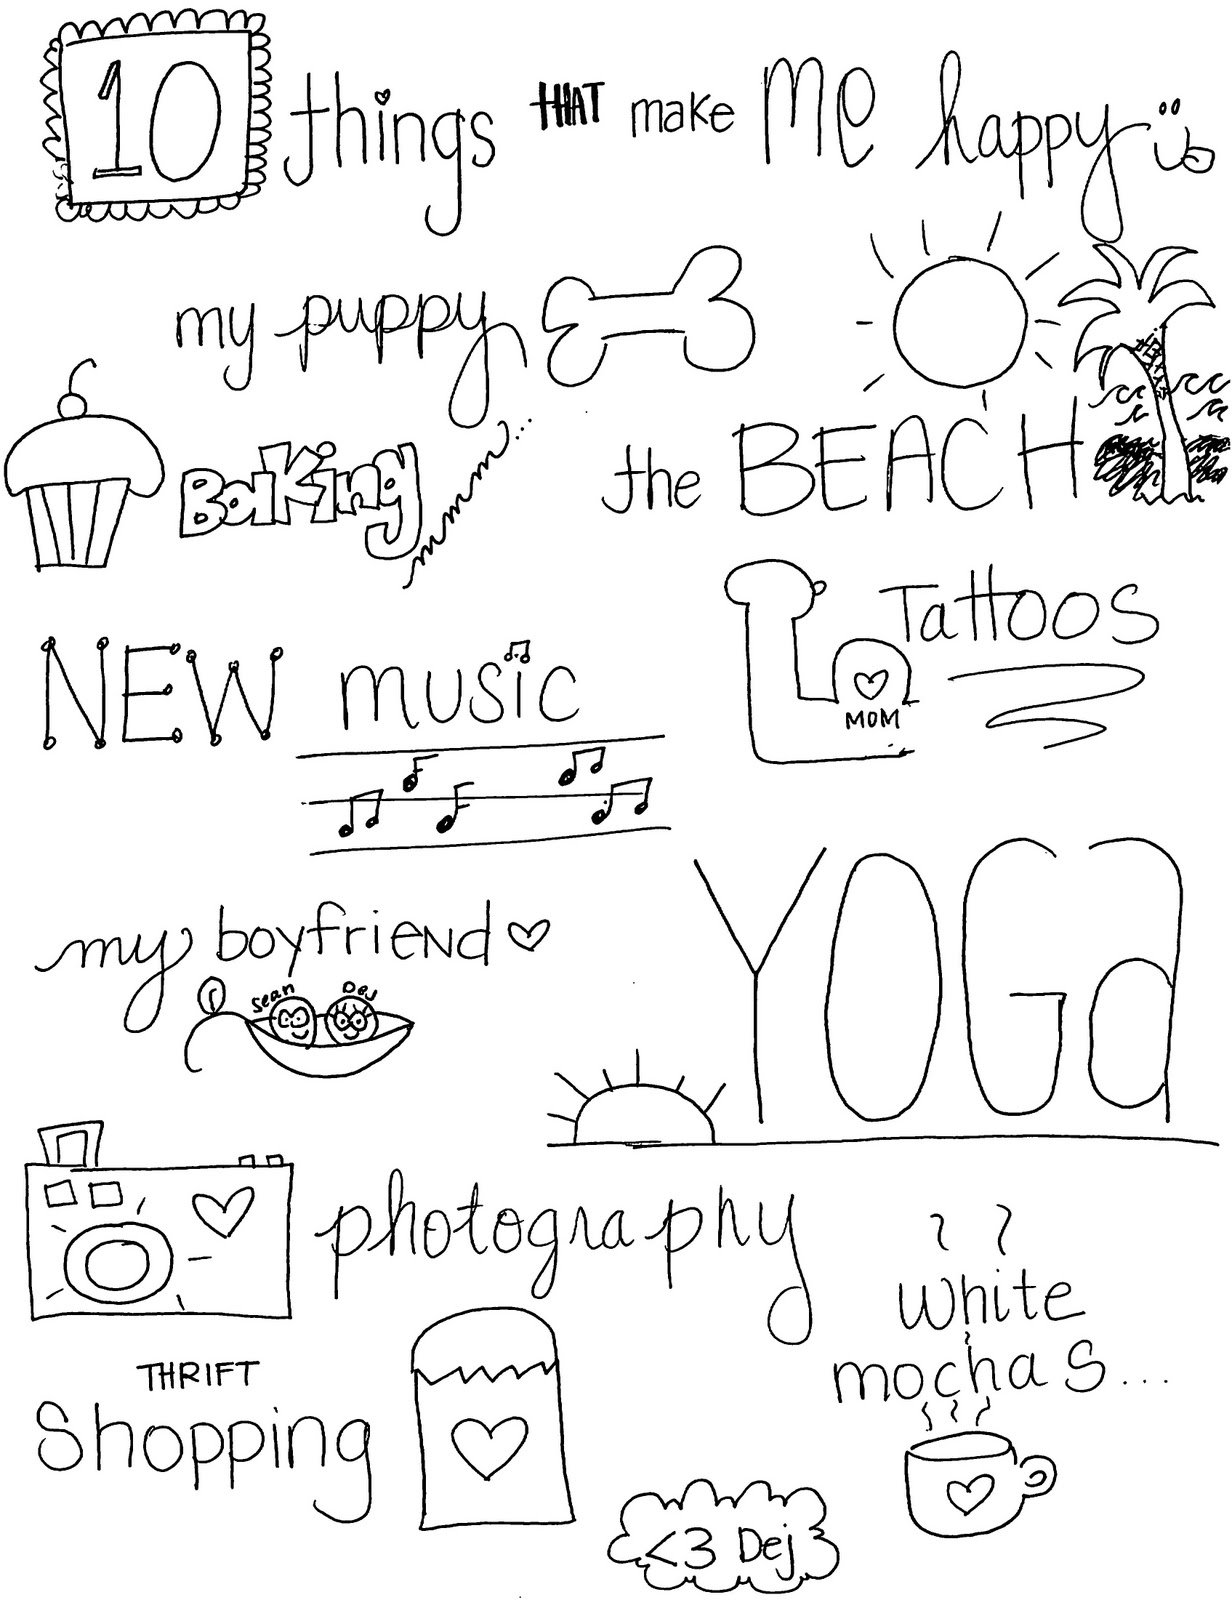 10 things THAT make Me happy
my puppy
the BEACH
Baking
Tattoos
MOM
NEW music
YOGa
my boyfriend
Sean Dej
photography
white
mochas...
THRIFT
Shopping
<3 Dej